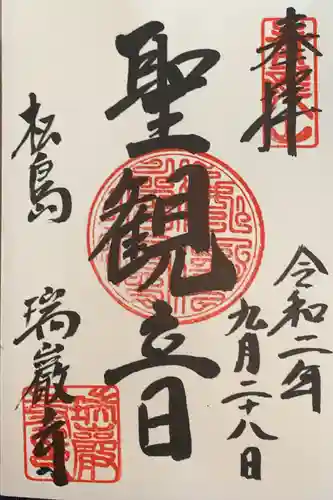 奉拝
令和二年
九月二十八日
聖観音
松島
瑞巌寺
瑞巌